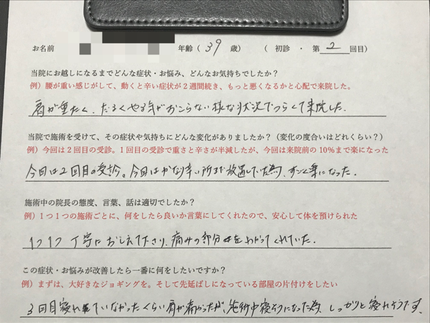 お名前 年齢（ 39 歳） （ 初診 ・ 第 2 回目）
当院にお越しになるまでどんな症状・お悩み、どんなお気持ちでしたか？
例）腰が重い感じがして、動くと辛い症状が2週間続き、もっと悪くなるかと心配で来院した。
肩が重たく、だるくやる気がおこらない様な状況でつらくて来院した。
当院で施術を受けて、その症状や気持ちにどんな変化がありましたか？（変化の度合いはどれくらい？）
例）今回は2回目の受診。1回目の受診で重さと辛さが半減したが、今回は来院前の10%まで楽になった
今回は2回目の受診。今回はかなり辛い所まで放置していた為、すごく楽になった。
施術中の院長の態度、言葉、話は適切でしたか？
例）1つ1つの施術ごとに、何をしたら良いか言葉にしてくれたので、安心して体を預けられた
1つ1つ丁寧におしえて下さり、痛みの部分をわかってくれていた。
この症状・お悩みが改善したら一番に何をしたいですか？
例）まずは、大好きなジョギングを。そして先延ばしになっている部屋の片付けをしたい
3回目寝れていなかったくらい肩が痛かったが、施術中寝そうになった為、しっかりと寝れそうです。